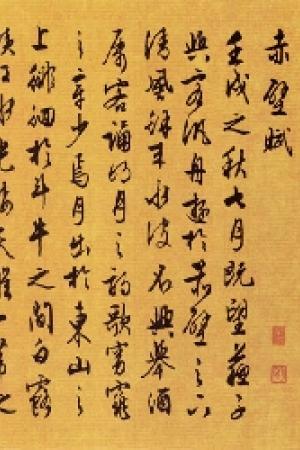 赤壁賦
壬戌之秋七月既望蘇子
與客汎舟遊於赤壁之下
清風徐來水波不興舉酒
屬客誦明月之詩歌窈窕
之章少焉月出於東山之
上徘徊於斗牛之間白露
橫江水光接天縱一葦之